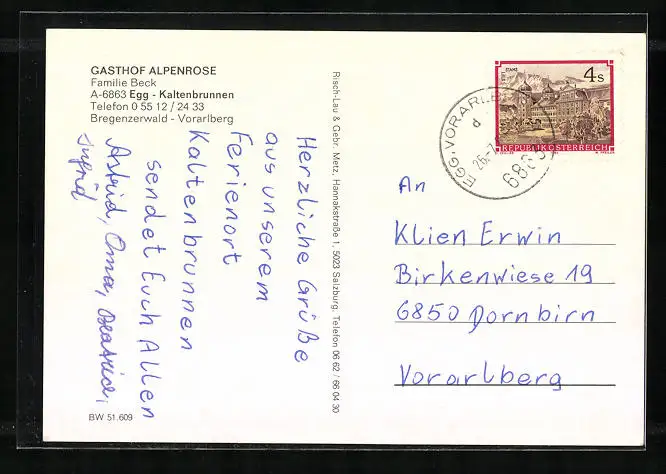 GASTHOF ALPENROSE
Familie Beck
A-6863 Egg - Kaltenbrunnen
Telefon 0 55 12 / 24 33
Bregenzerwald - Vorarlberg
Herzliche Grüße
aus unserem
Ferienort
Kaltenbrunnen
sendet Euch Allen
Astrid, Oma, Beatrice,
Ingrid
BW 51.609
Risch-Lau & Gebr. Metz, Hannakstraße 1, 5023 Salzburg, Telefon 06 62 / 66 04 30
STIFT STAMS
4 S
REPUBLIK ÖSTERREICH
EGG, VORARLB
d
26.-7
6863
An
Klien Erwin
Birkenwiese 19
6850 Dornbirn
Vorarlberg